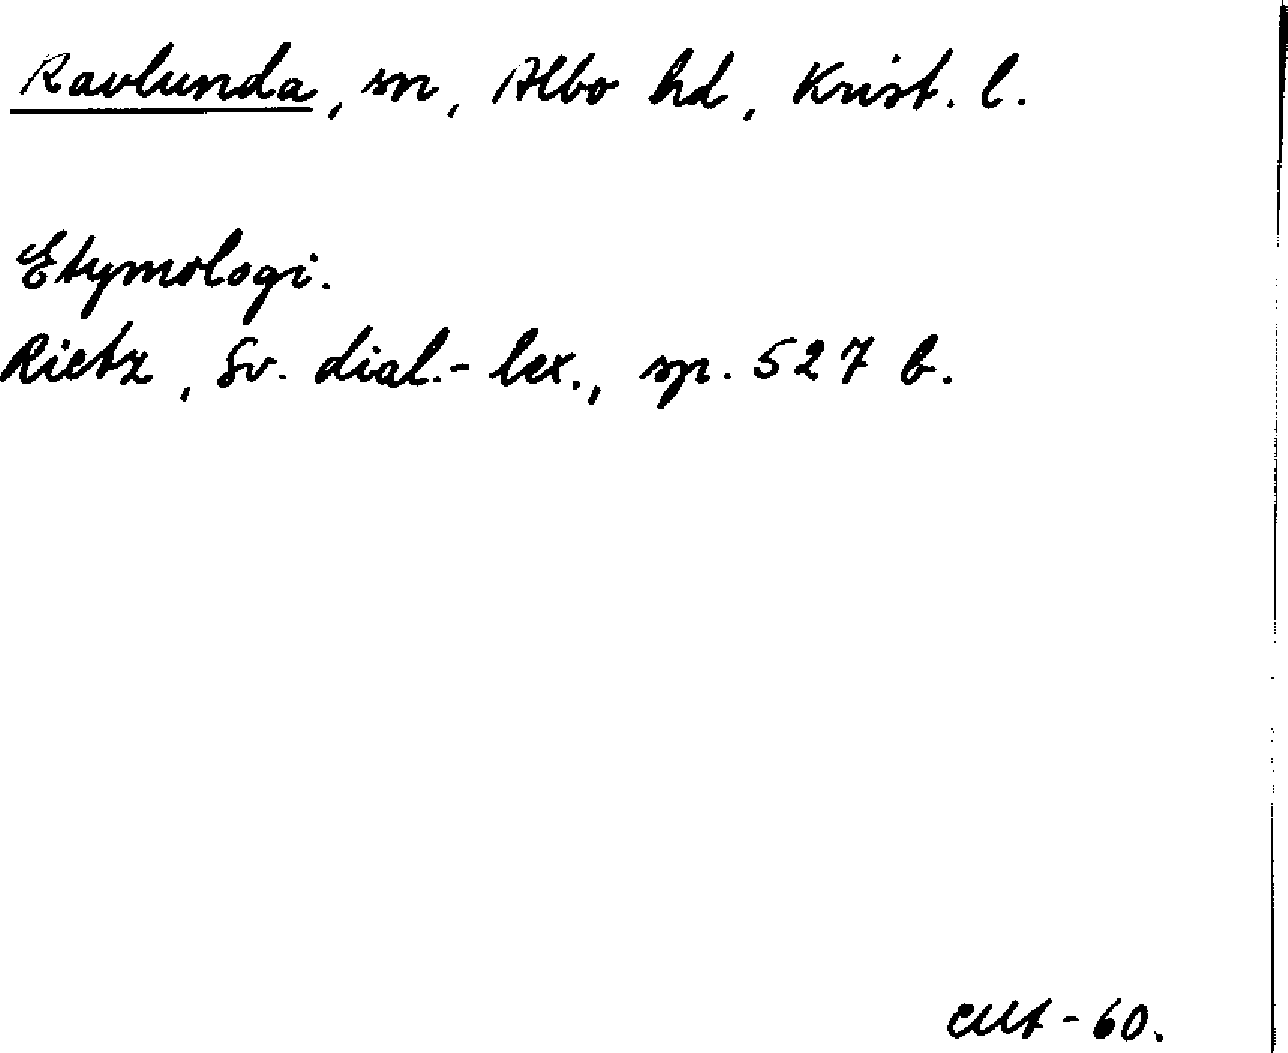 Ravlunda, sn, Albo hd, Krist. l.
Etymologi.
Rietz, Sv. dial.-lex., sp. 527 b.
-60.